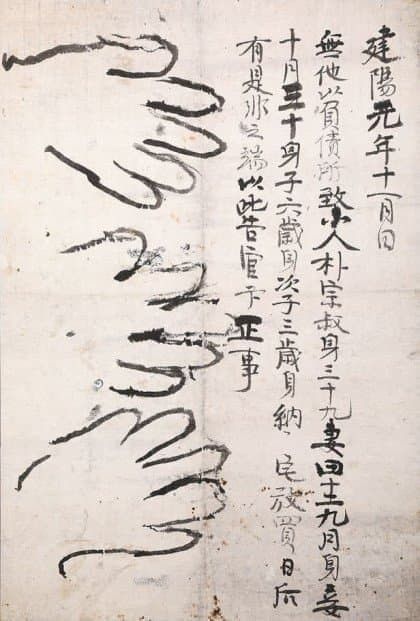 建陽元年十一月日
無他以負債所致小人朴宗叔身三十九妻田士九月身妾
十月三十身子六歲身次子三歲身納、宅放買日后
有是非之端以此告官卞正事